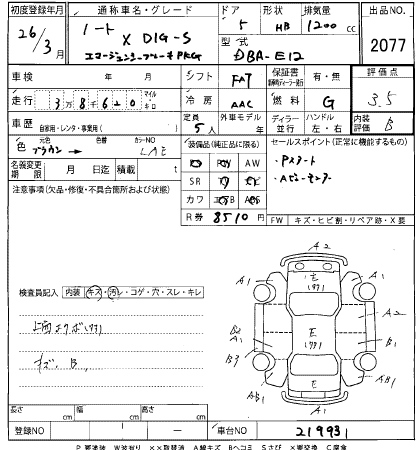 初度登録年月 通称車名・グレード ドア 形状 排気量 出品NO.
26/3月 ノート X DIG-S 5 HB 1200cc 2077
エマージェンシーブレーキPKG 型式 DBA-E12
車検 年 月 シフト FAT 保証書 有・無 評価点
走行 3万8千620 マイル キロ 冷房 AAC 燃料 G 3.5
車歴 自家用・レンタ・事業用( ) 定員 5人 外車モデル年 ディーラー 並行 ハンドル 左・右 内装評価 B
色 元色 ブラウン 色替 カラーNO LAE 装備品(純正品に限る) セールスポイント(正常に機能するもの)
名義変更期限 月 日迄 積載 t PS PW AW ・Pスタート
注意事項(欠品・修復・不具合箇所および状態) SR TV ・Aビューモニター
カワ エアB
R券 8510円 FW キズ・ヒビ割・リペア跡・X要
A2
A1 A1
E A2
B2 A1 B1
B3
A1 AB1
A1
検査員記入 内装 キズ・汚レ・コゲ・穴・スレ・キレ
キズ、B
長さ cm 幅 cm 高さ cm
登録NO — 車台NO 219931
P要塗装 W波有り ××取替済 A線キズ Bヘコミ Sさび ×要交換 C腐食